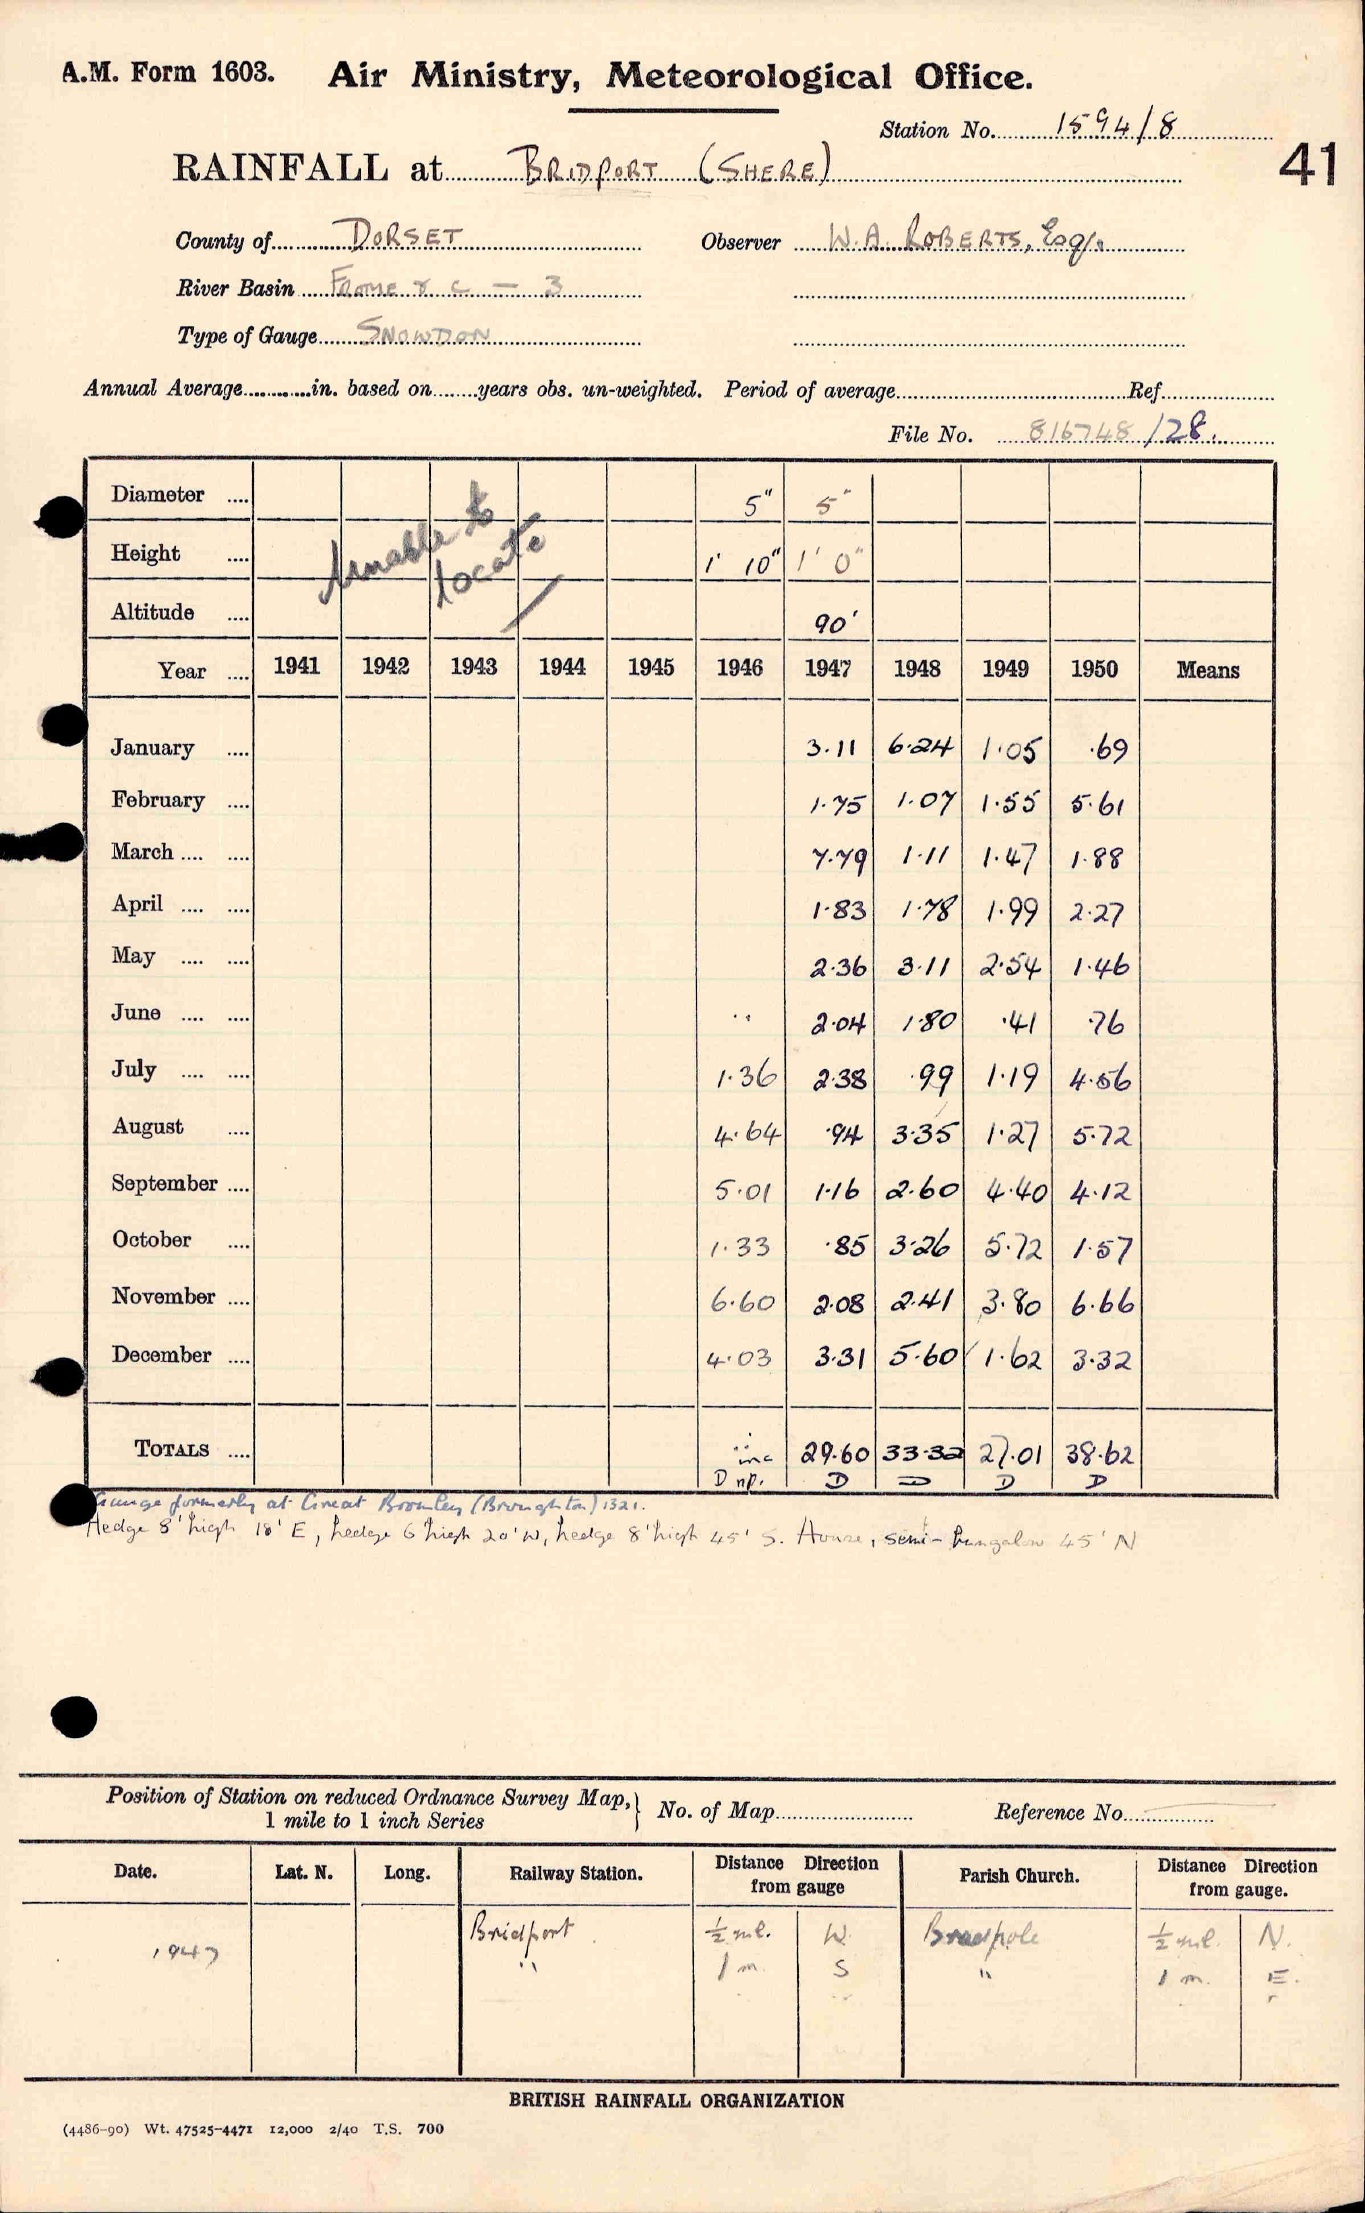 A.M. Form 1603. Air Ministry, Meteorological Office.
Station No. 1594/8
41
RAINFALL at BRIDPORT (SHERE)
County of DORSET Observer W.A. ROBERTS, Esq.
River Basin FROME & C — 3
Type of Gauge SNOWDON
Annual Average in. based on years obs. un-weighted. Period of average Ref.
File No. 816748/28.
Diameter 5" 5"
Unable to locate
Height 1' 10" 1' 0"
Altitude 90'
Year 1941 1942 1943 1944 1945 1946 1947 1948 1949 1950 Means
January 3.11 6.24 1.05 .69
February 1.75 1.07 1.55 5.61
March 7.79 1.11 1.47 1.88
April 1.83 1.78 1.99 2.27
May 2.36 3.11 2.54 1.46
June .. 2.04 1.80 .41 .76
July 1.36 2.38 .99 1.19 4.56
August 4.64 .94 3.35 1.27 5.72
September 5.01 1.16 2.60 4.40 4.12
October 1.33 .85 3.26 5.72 1.57
November 6.60 2.08 2.41 3.80 6.66
December 4.03 3.31 5.60 1.62 3.32
TOTALS inc 29.60 33.32 27.01 38.62
D np. D D D D
Gauge formerly at Great Bromley (Broughton) 1321.
Hedge 8' high 18' E, hedge 6' high 20' W, hedge 8' high 45' S. House, semi-bungalow 45' N
Position of Station on reduced Ordnance Survey Map, 1 mile to 1 inch Series } No. of Map Reference No.
Date. Lat. N. Long. Railway Station. Distance Direction from gauge Parish Church. Distance Direction from gauge.
Bridport ½ ml. W. Bradpole ½ ml. N.
1947 " 1 m. S " 1 m. E.
BRITISH RAINFALL ORGANIZATION
(4486-90) Wt. 47525-4471 12,000 2/40 T.S. 700